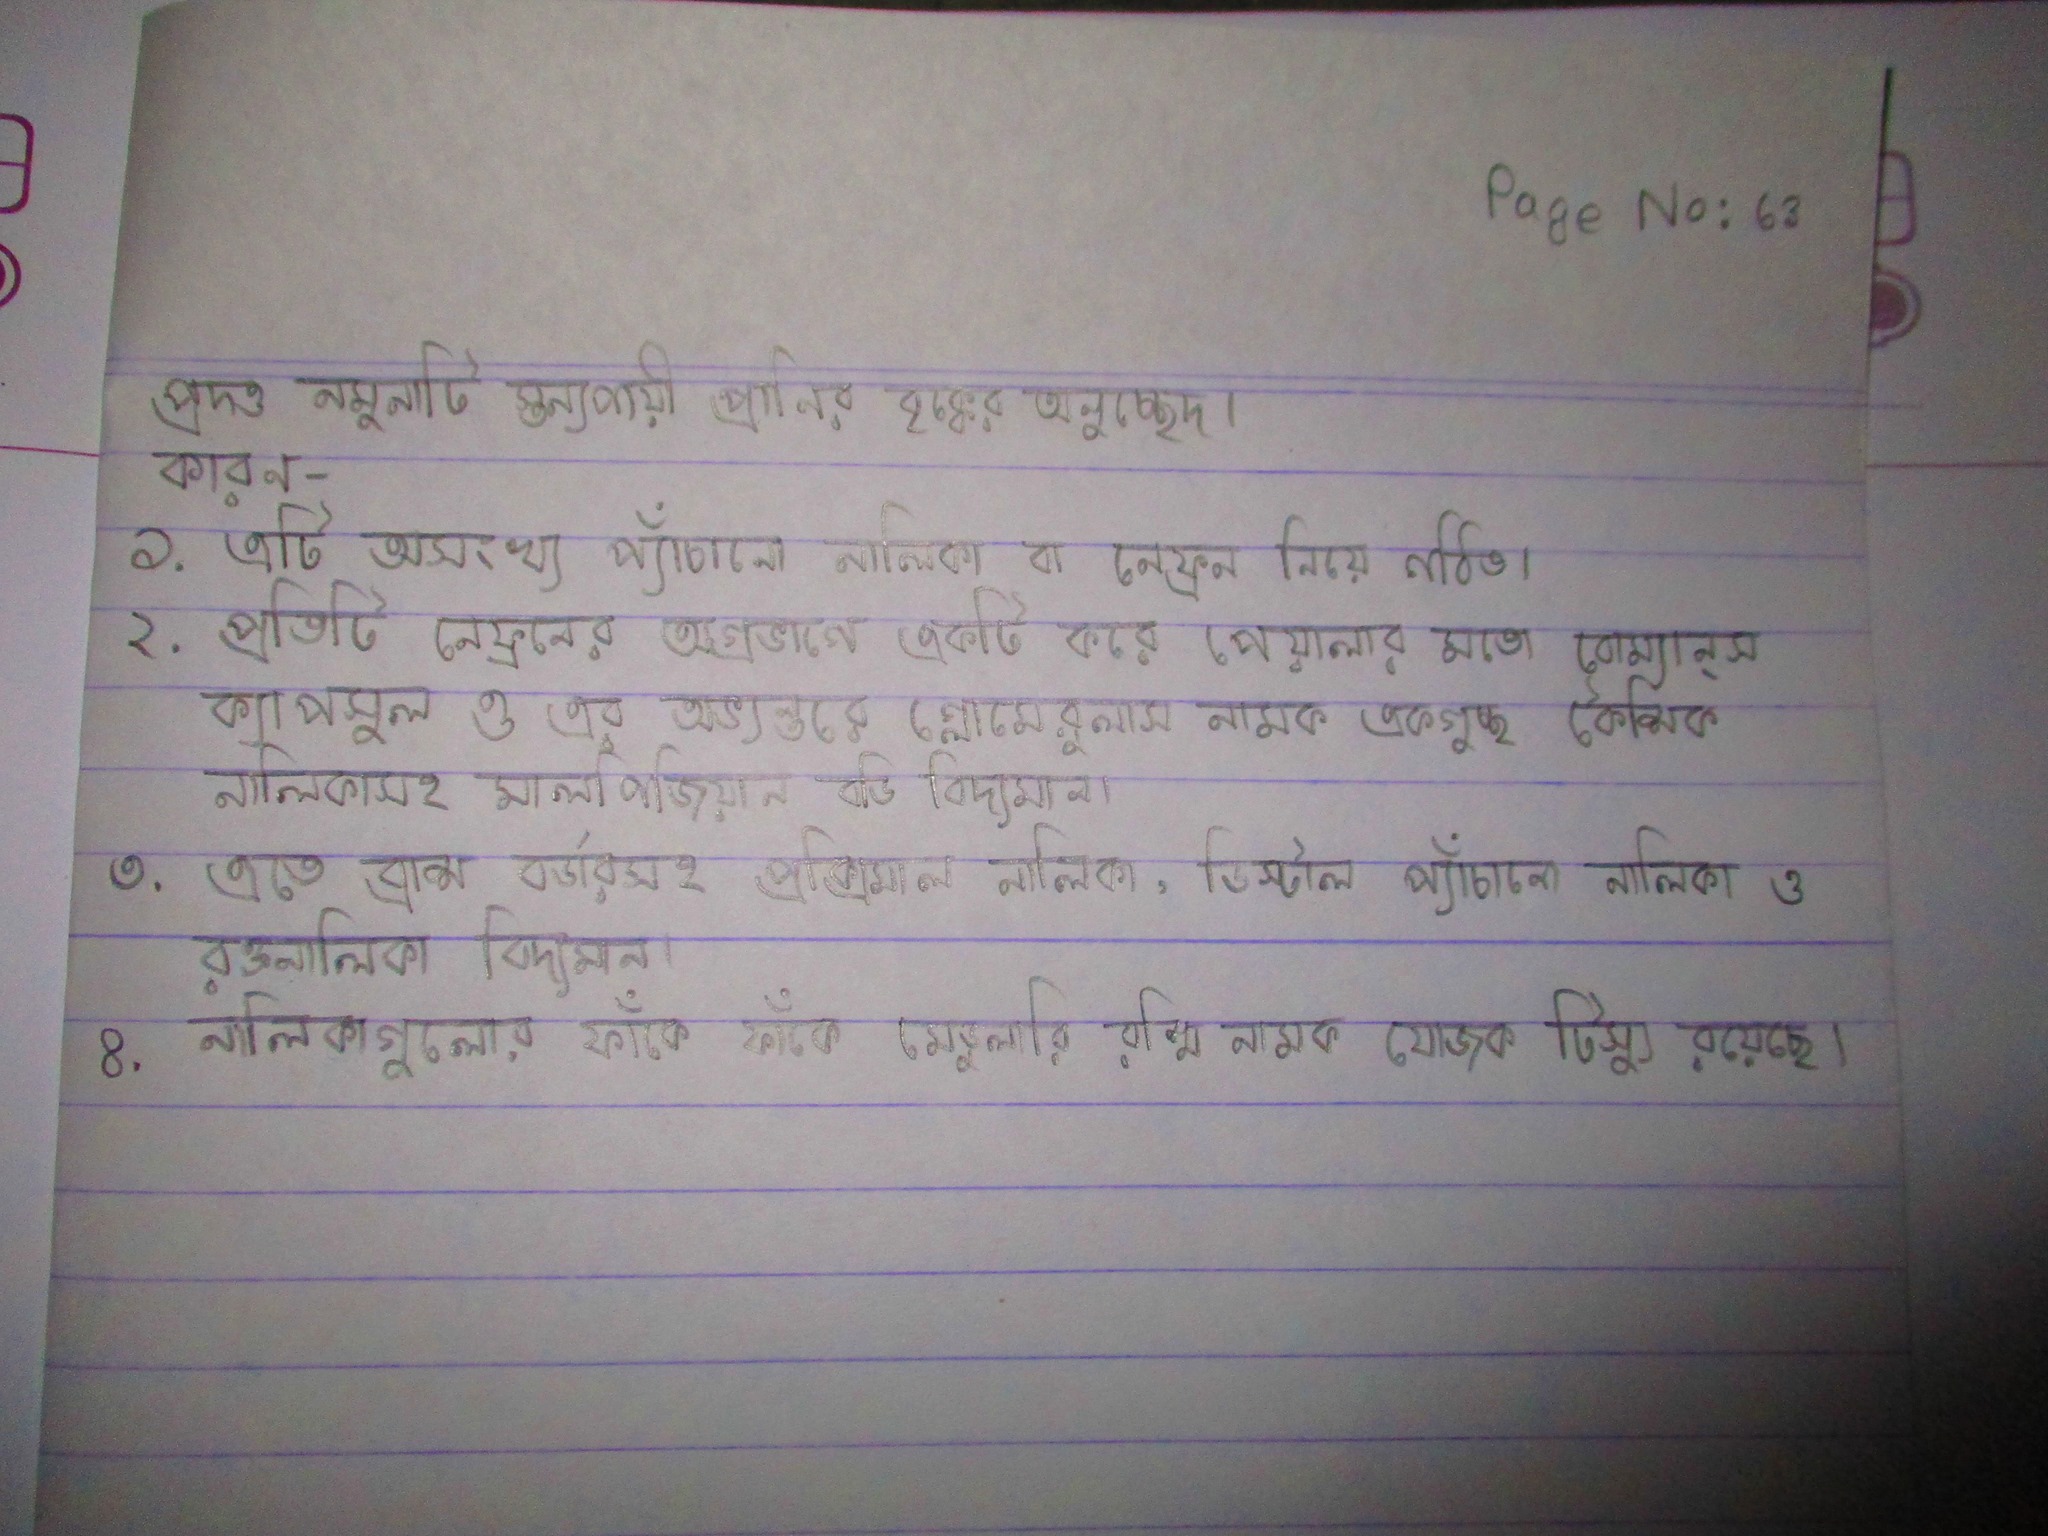 Page No: 63
প্রদত্ত নমুনাটি স্তন্যপায়ী প্রানির বৃক্কের অনুচ্ছেদ।
কারন-
১. এটি অসংখ্য প্যাঁচানো নালিকা বা নেফ্রন নিয়ে গঠিত।
২. প্রতিটি নেফ্রনের অগ্রভাগে একটি করে পেয়ালার মতো বোম্যান্স
ক্যাপসুল ও এর অভ্যন্তরে গ্লোমেরুলাস নামক একগুচ্ছ কৈশিক
নালিকাসহ মালপিজিয়ান বডি বিদ্যমান।
৩. এতে ব্রাশ বর্ডারসহ প্রক্সিমাল নালিকা, ডিস্টাল প্যাঁচানো নালিকা ও
রক্তনালিকা বিদ্যমান।
৪. নালিকাগুলোর ফাঁকে ফাঁকে মেডুলারি রশ্মি নামক যোজক টিস্যু রয়েছে।